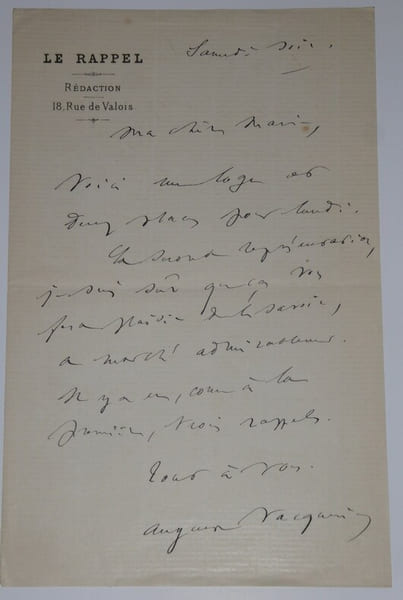 LE RAPPEL
RÉDACTION
18, Rue de Valois
Samedi soir.
Ma chère Marie,
Voici une loge et
deux places pour lundi.
La seconde représentation,
je suis sûr que ça vous
fera plaisir de le savoir,
a marché admirablement.
Il y a eu, comme à la
première, trois rappels.
Tout à vous.
Auguste Vacquerie